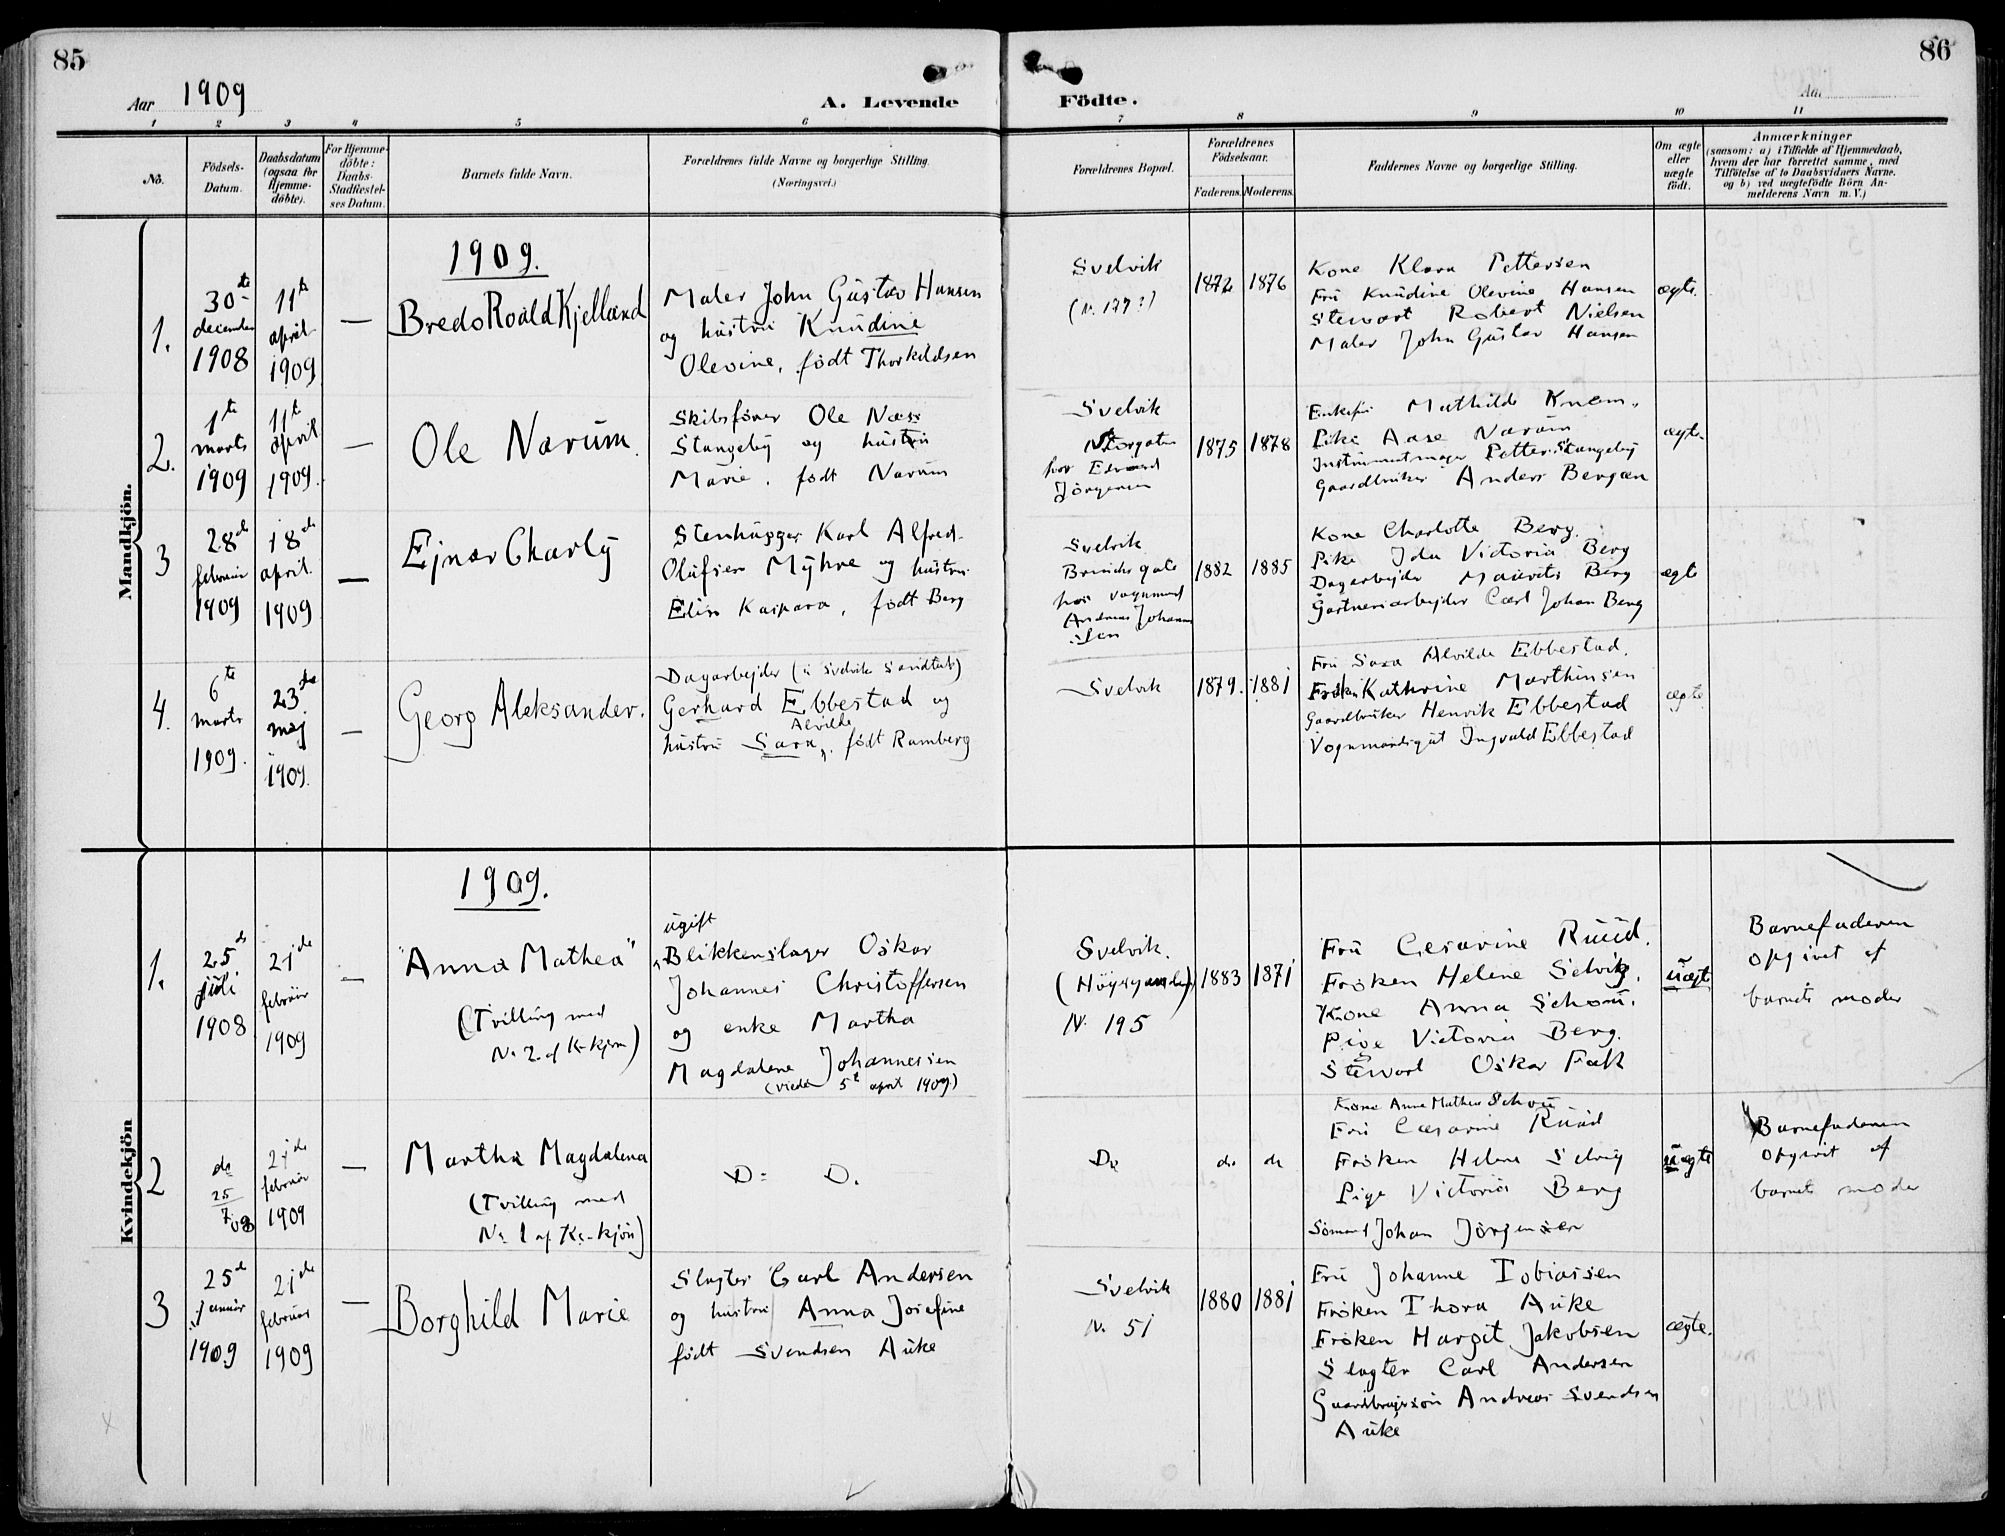 85
86
Aar 1909
A. Levende Födte.
Aar
1 2 3 4 5 6 7 8 9 10 11
No.
Födsels-Datum.
Daabsdatum (ogsaa for Hjemme-döbte).
For Hjemme-döbte: Daabs-Stadfæstel-ses Datum.
Barnets fulde Navn.
Forældrenes fulde Navne og borgerlige Stilling.
(Næringsvei.)
Forældrenes Bopæl.
Forældrenes Födselsaar.
Faderens. Moderens.
Faddernes Navne og borgerlige Stilling.
Om ægte eller uægte födt.
Anmærkninger
(saasom: a) i Tilfælde af Hjemmedaab,
hvem der har forrettet samme, med
Tilföielse af to Daabsvidners Navne.
og b) ved uægtefödte Börn An-
melderens Navn m. V.)
Mandkjön.
1909.
1.
30te
december
1908
11te
april
1909
—
Bredo Roald Kjelland
Maler John Gustav Hansen
og hustru Knudine
Olevine, født Thorkildsen
Svelvik
(N. 177?)
1872
1876
Kone Klara Pettersen
Fru Knudine Olevine Hansen
Stewart Robert Nielsen
Maler John Gustav Hansen
ægte.
2.
1te
marts
1909
11te
april
1909.
—
Ole Narum.
Skibsfører Ole Næss
Stangeby og hustru
Marie, født Narum
Svelvik
Storgaten
hos Edvard
Jörgensen
1875
1878
Enkefru Mathilde Knem.
Pike Aase Narum
Instrumentmager Petter Stangeby
Gaardbruker Anders Bergan
ægte.
3
28de
februar
1909
18de
april.
1909
—
Ejnar Charly
Stenhugger Karl Alfred
Olufsen Myhre og hustru
Elise Kaspara, født Berg
Svelvik
gate
hos vognmand
Andreas Johann
sen
1882
1885
Kone Charlotte Berg.
Pike Ida Victoria Berg
Dagarbejder Mauritz Berg
Gartneriarbejder Carl Johan Berg
ægte
4.
6te
marts
1909.
23de
maj
1909.
—
Georg Aleksander.
Dagarbejder (i Svelvik Sandtak)
Gerhard Ebbestad og
Alvilde
hustru Sara, født Ramberg
Svelvik
1879.
1881
Fru Sara Alvilde Ebbestad.
Frøken Kathrine Marthinsen
Gaardbruker Henrik Ebbestad
Vognmandsgut Ingvald Ebbestad
ægte
Kvindekjön
1909.
1.
25de
juli
1908
21de
februar
1909
—
"Anna Mathea"
(Tvilling med
No 2. af K-kjøn)
ugift
Blikkenslager Oskar
Johannes Christoffersen
og enke Martha
Magdalene Johannessen
(viede 5te april 1909)
Svelvik.
N. 195
1883
1871
Fru Cesarine Ruud.
Frøken Helene Selvig.
Kone Anna Schou.
Pige Victoria Berg.
Stewart Oskar Falk
uægte
Barnefaderen
opgivet af
barnets moder
2
do
25/7 08
21de
februar
1909
—
Martha Magdalena
(Tvilling med
No 1 af K-kjøn)
Do Do.
Do
do
do
Kone Anna Mathea Schou
Fru Cæsarine Ruud
Frøken Helene Selvig
Pige Victoria Berg
Sømand Johan Jörgensen
uægte
Barnefaderen
opgivet af
barnets moder
3
25de
januar
1909
21de
februar
1909
—
Borghild Marie
Slagter Carl Andersen
og hustru Anna Josefine
født Svendsen Auke
Svelvik
N. 51
1880
1881
Fru Johanne Tobiassen
Frøken Thora Auke
Frøken Margit Jakobsen
Slagter Carl Andersen
Gaardbrugersøn Andreas Svendsen
Auke
ægte.